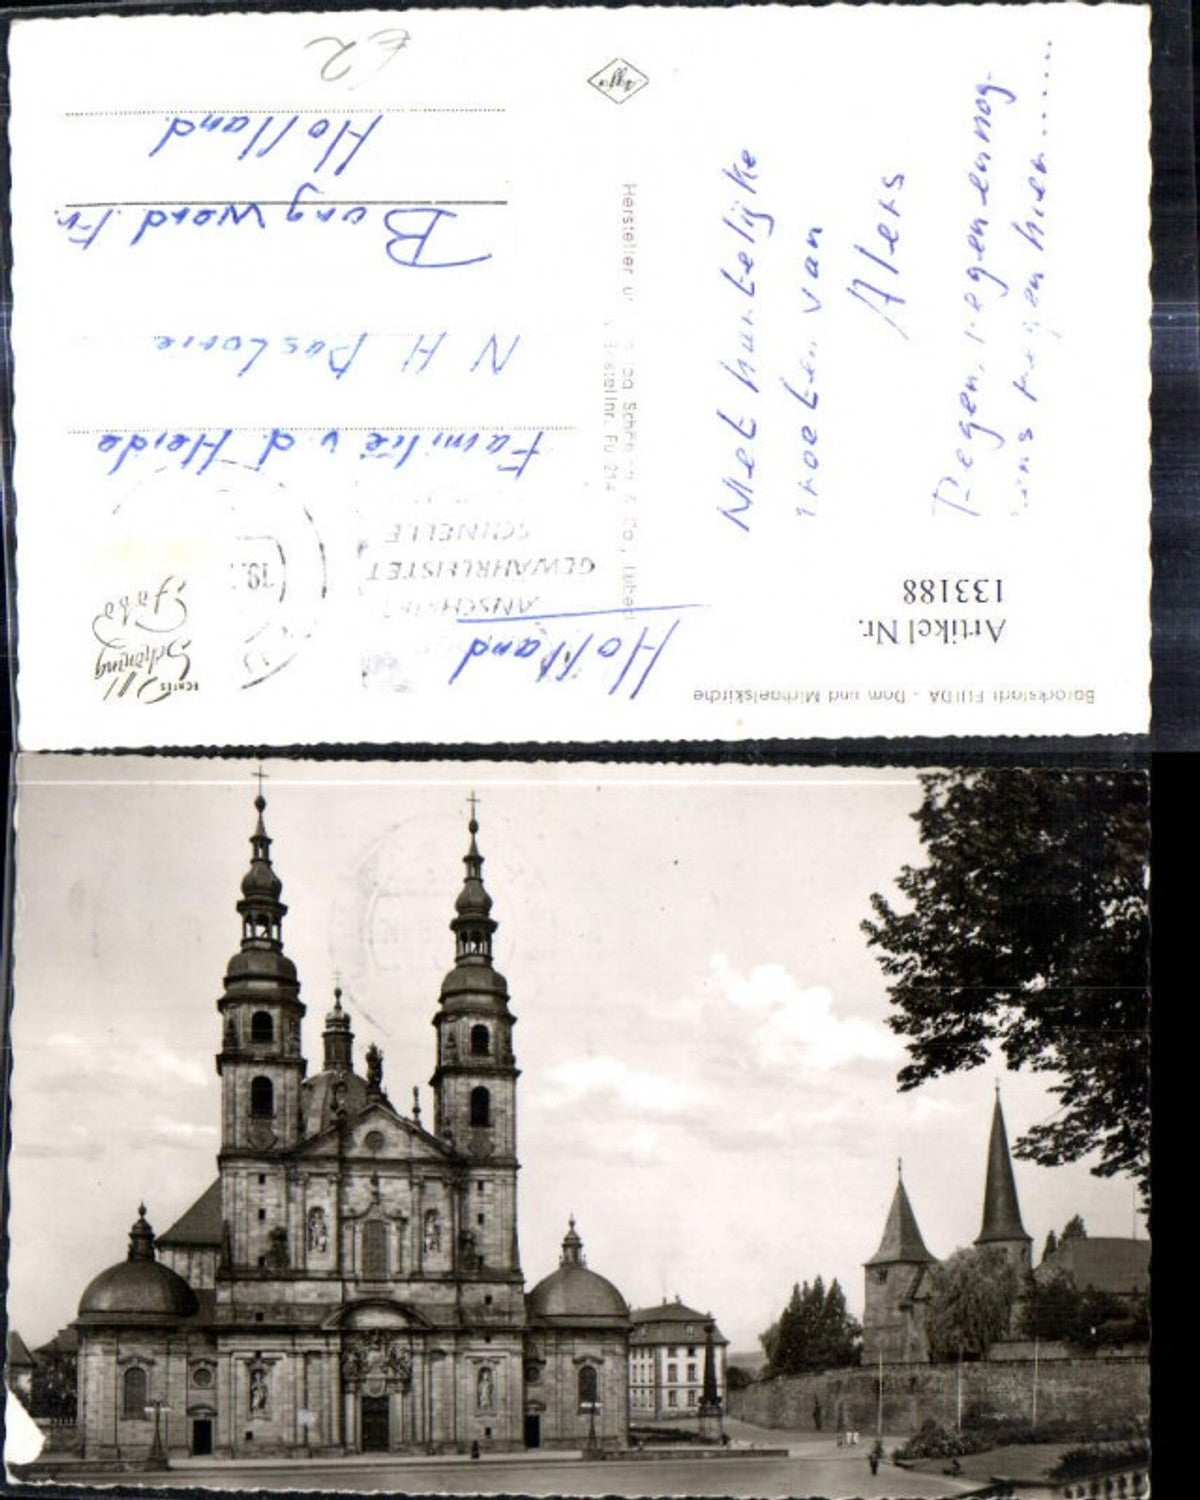 Barockstadt FULDA - Dom und Michaelskirche
Artikel Nr.
133188
Met hartelijke
groeten van
Alers
Regen, regen en nog
eens regen hier.....
Agfa
ECHTES
Schöning
Foto
Holland
ANSCHRIFT
GEWÄHRLEISTET
SCHNELLE
19.
Familie v.d. Heide
N H Pastorie
Burgwerd. Fr.
Holland
€2
Hersteller u.
Schöning & Co., Lübeck
Bestellnr. Fu 214